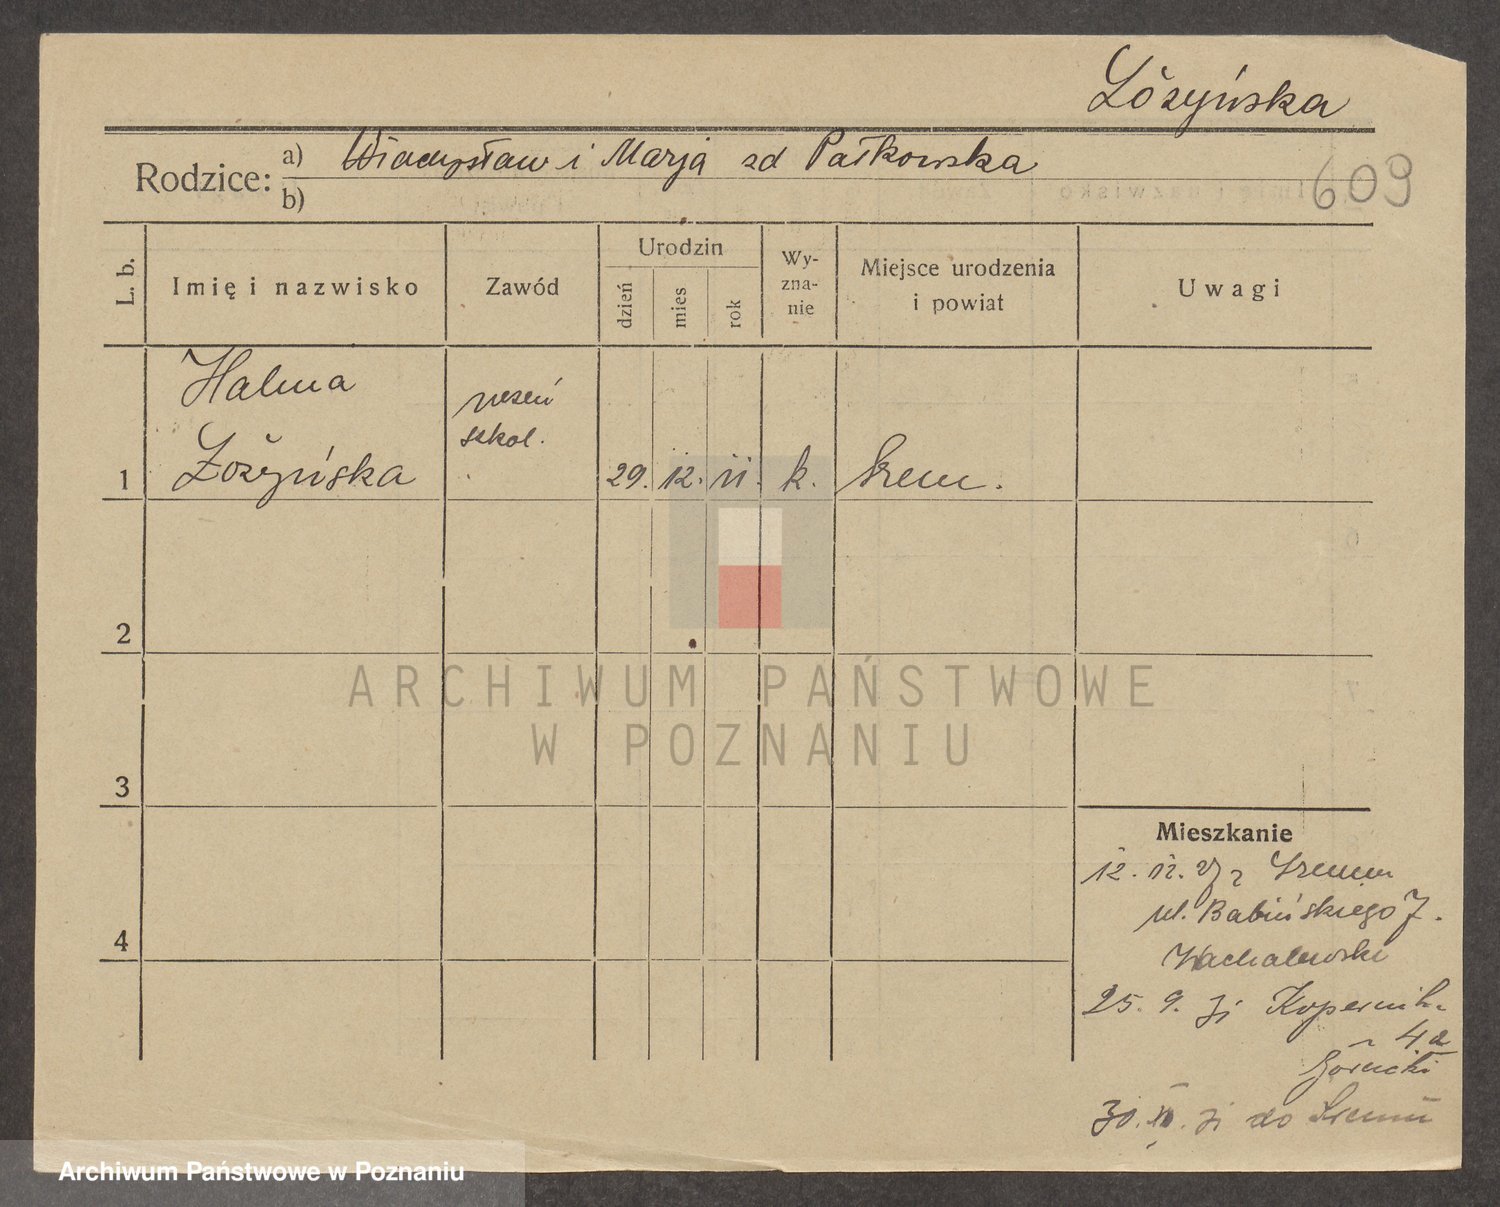 Łożyńska
Rodzice: a) Władysław i Marja zd Pałkowska
b)
609
L. b.
Imię i nazwisko
Zawód
Urodzin
dzień
mies
rok
Wy-
zna-
nie
Miejsce urodzenia
i powiat
Uwagi
Halina
uczeń
szkol.
1 Łożyńska 29. 12. 11. k. Śrem.
2
3
4
Mieszkanie
12. 12. z Śremu
ul. Babińskiego 7.
25. 9. 31 Kopernik.
4a
Górecki
30. 31 do Śremu
ARCHIWUM PAŃSTWOWE
W POZNANIU
Archiwum Państwowe w Poznaniu